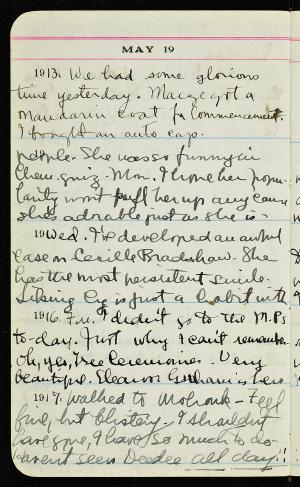 MAY 19
1913. We had some glorious
time yesterday. Marge got a
mandarin coat for Commencement.
I bought an auto cap.
people. She was so funny in
Chem. quiz. Mon. I hope her popu-
larity won't puff her up any cause
she's adorable just as she is.
19 Wed. I've developed an awful
case on Cecille Bradshaw. She
has the most persistent smile.
Liking is just a habit with
1916 Fri. I didn't go to the M.P.s
to-day. Just why I can't remember.
Oh, yes, Tree Ceremonies. Very
beautiful. Eleanor is here
1917. Walked to Mohonk - Feel
fine, but blistery. I shouldn't
have gone, I have so much to do
Haven't seen Deedee all day!!